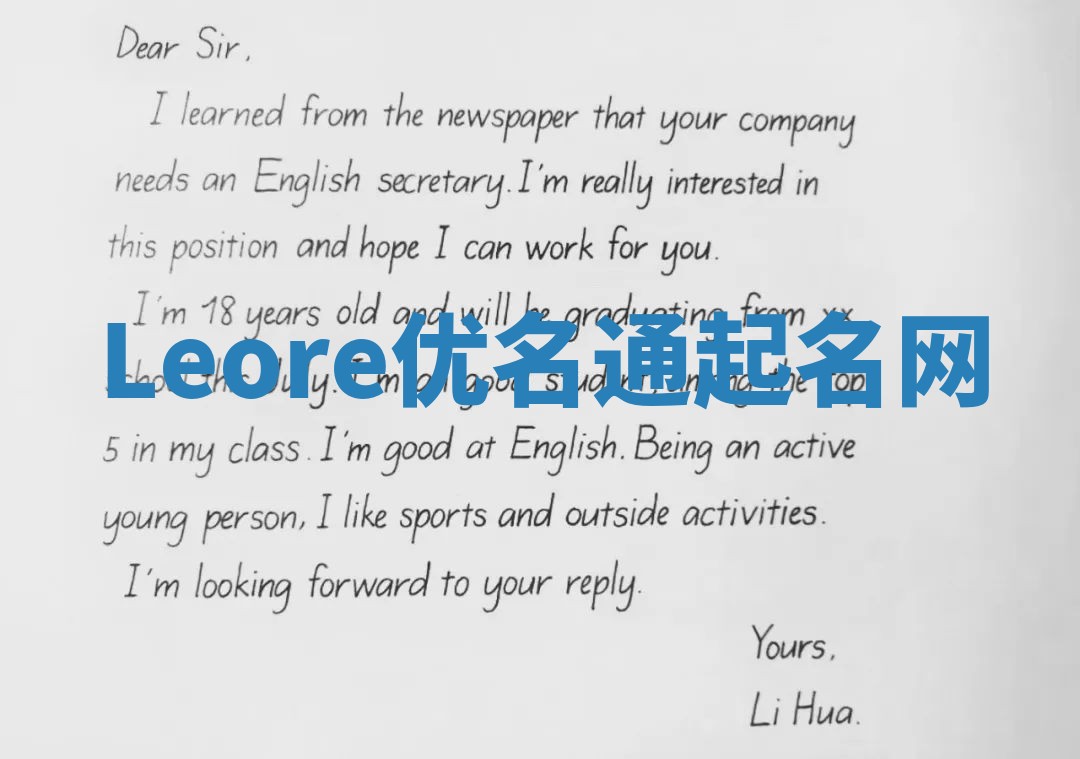 Dear Sir,
I learned from the newspaper that your company
needs an English secretary. I'm really interested in
this position and hope I can work for you.
I'm 18 years old and will be graduating from xx
Leore优名通起名网
school this July. I'm a good student, among the top
5 in my class. I'm good at English. Being an active
young person, I like sports and outside activities.
I'm looking forward to your reply.
Yours,
Li Hua.